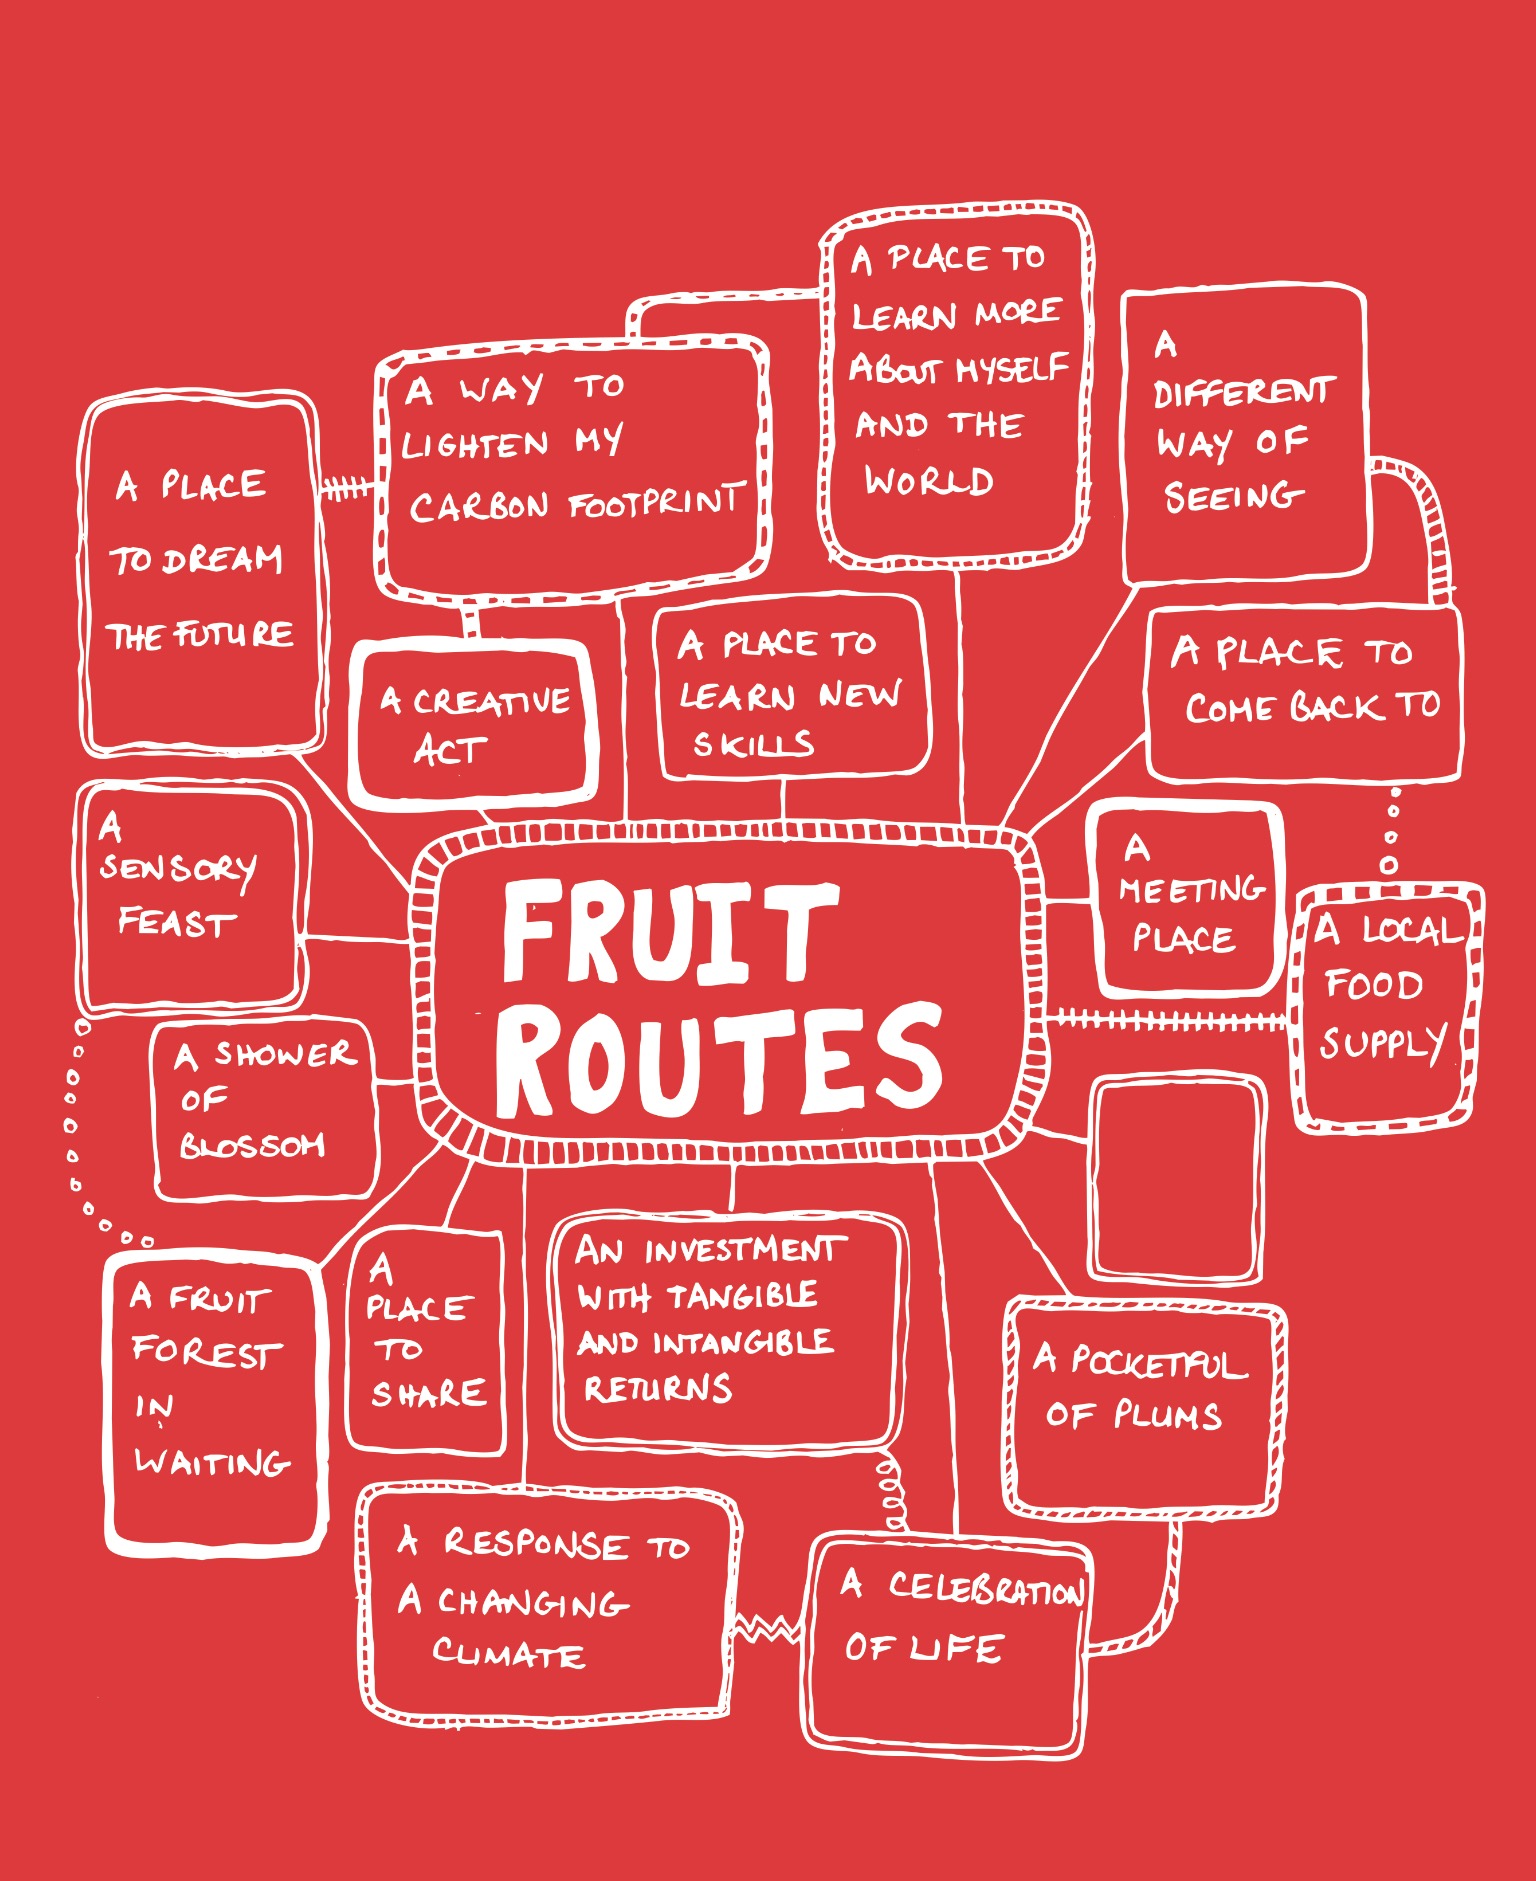 A PLACE TO
LEARN MORE
ABOUT MYSELF
AND THE
WORLD
A
DIFFERENT
WAY OF
SEEING
A WAY TO
LIGHTEN MY
CARBON FOOTPRINT
A PLACE
TO DREAM
THE FUTURE
A CREATIVE
ACT
A PLACE TO
LEARN NEW
SKILLS
A PLACE TO
COME BACK TO
A
SENSORY
FEAST
FRUIT
ROUTES
A
MEETING
PLACE
A LOCAL
FOOD
SUPPLY
A SHOWER
OF
BLOSSOM
A FRUIT
FOREST
IN
WAITING
A
PLACE
TO
SHARE
AN INVESTMENT
WITH TANGIBLE
AND INTANGIBLE
RETURNS
A POCKETFUL
OF PLUMS
A RESPONSE TO
A CHANGING
CLIMATE
A CELEBRATION
OF LIFE